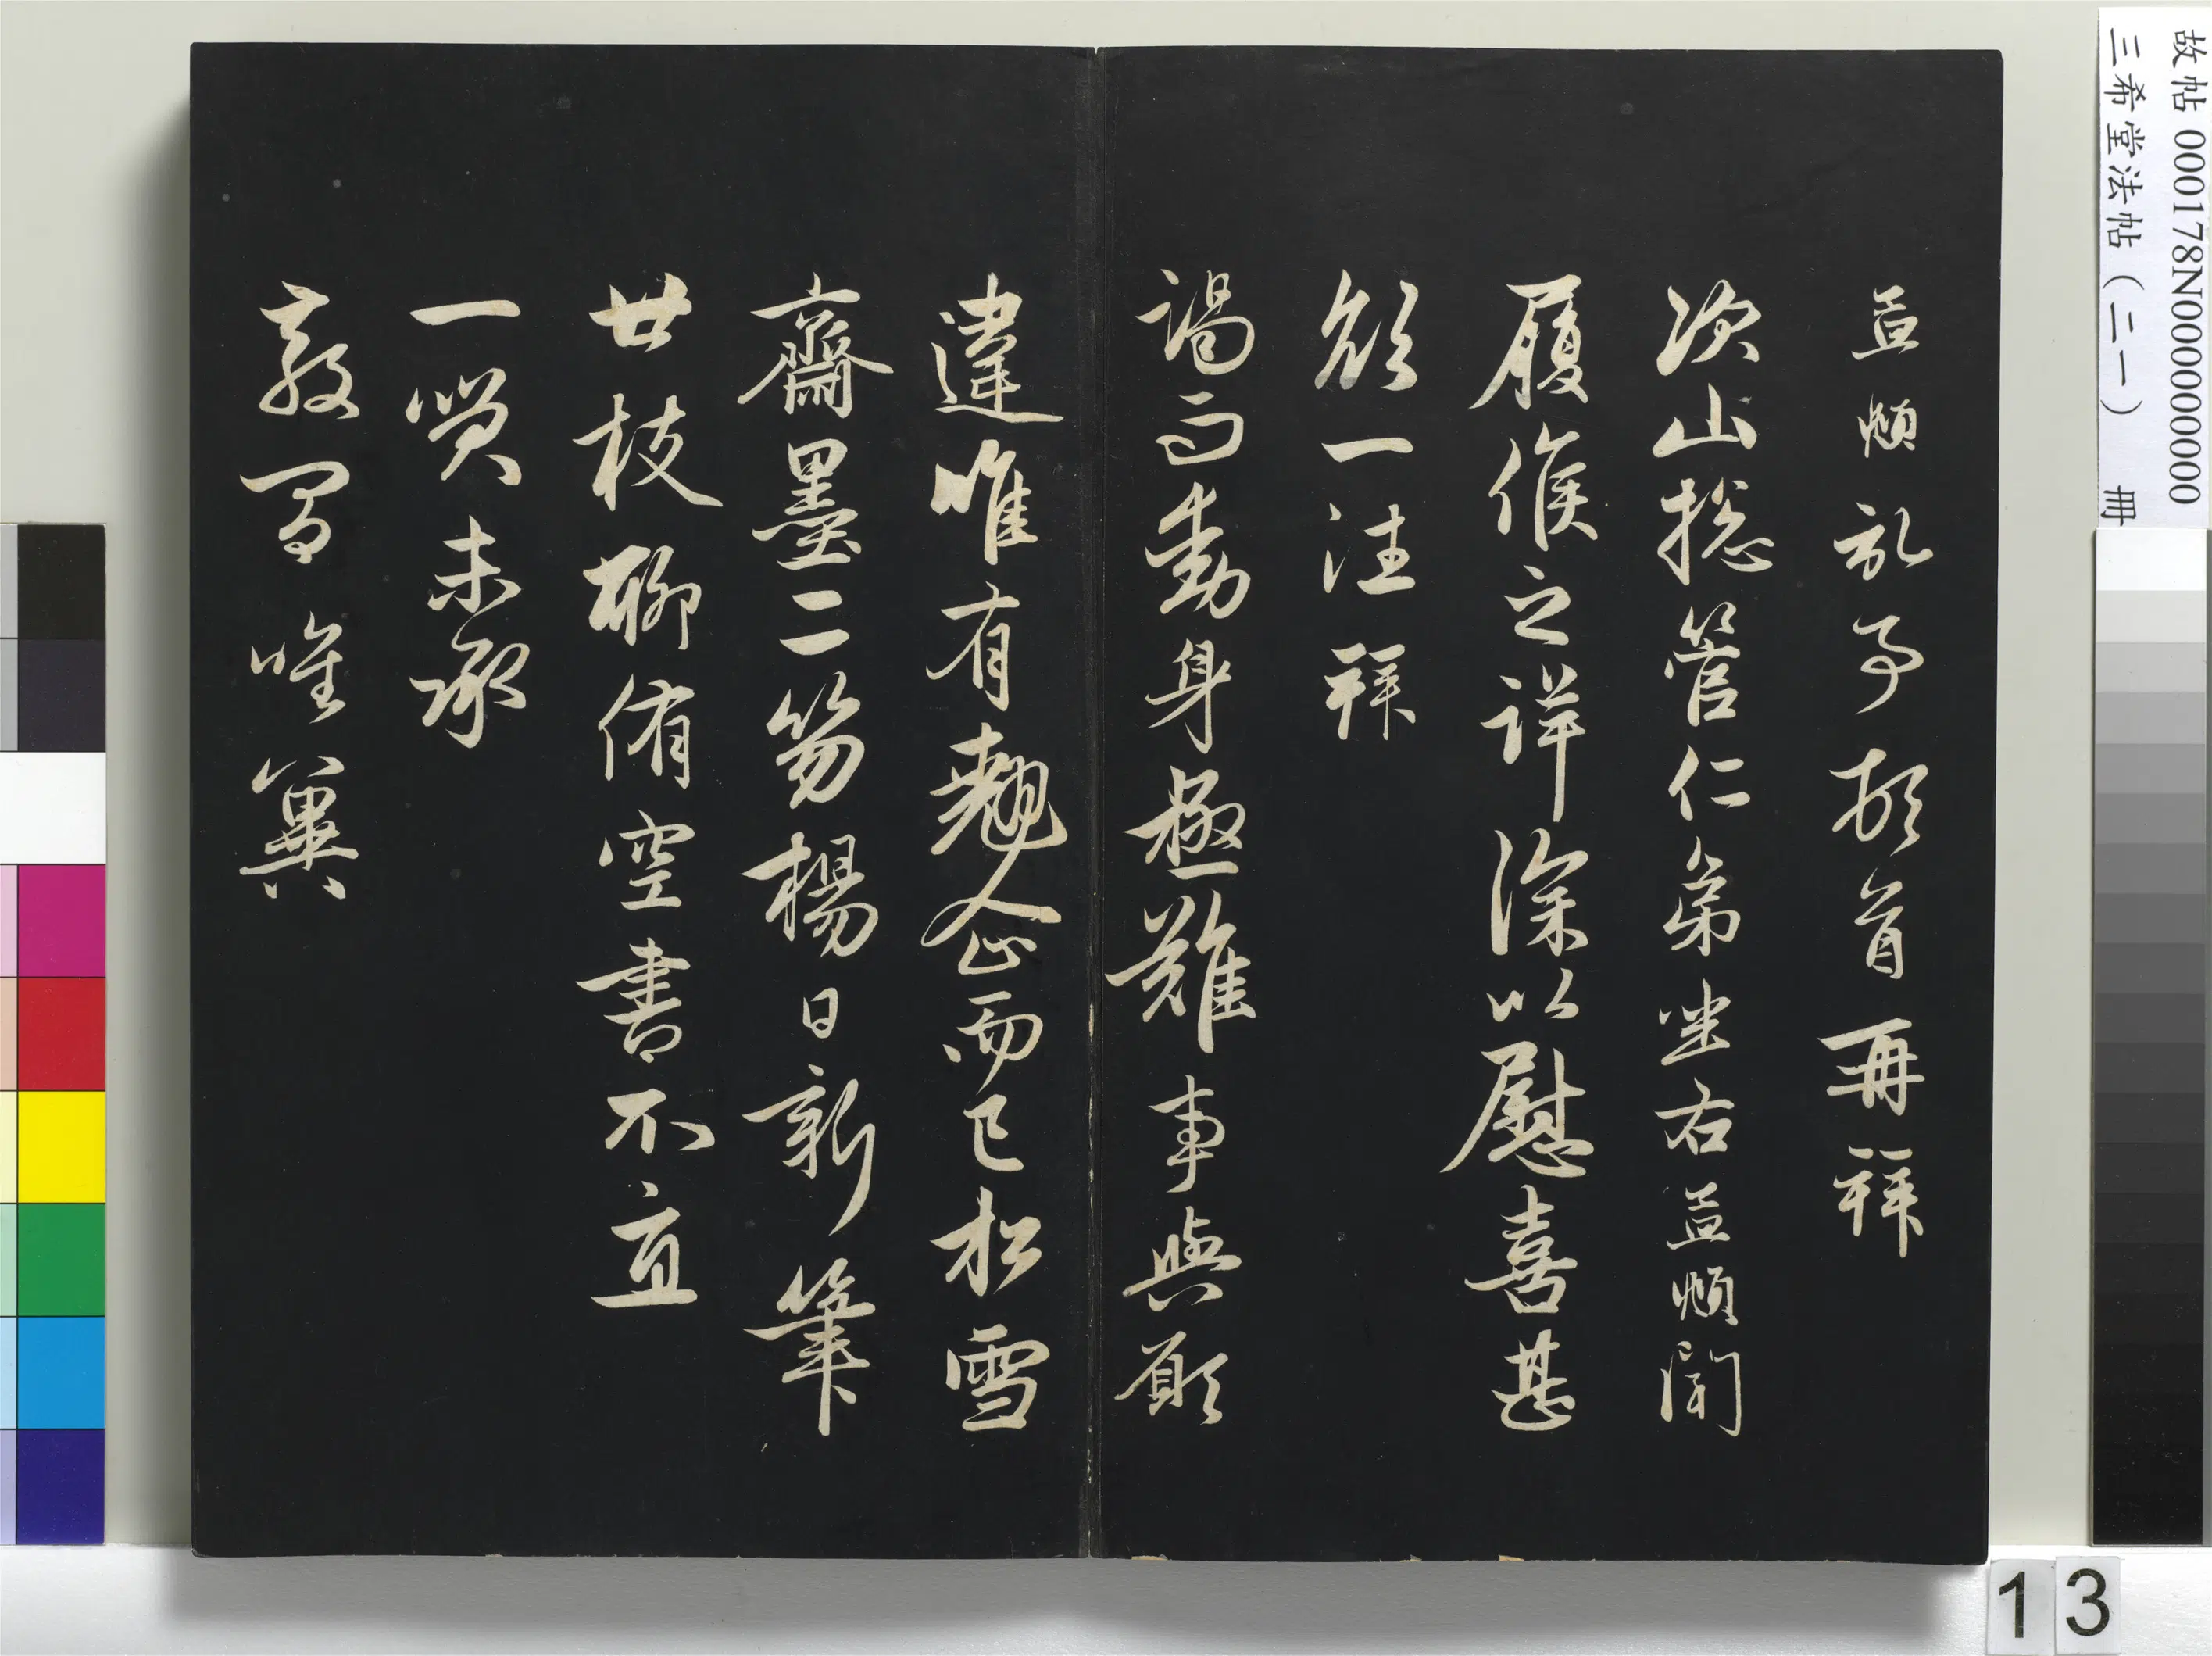 孟頫記事頓首再拜
次山總管仁弟坐右孟頫聞
履候之詳深以慰喜甚
欲一往拜
謁而動身極難事與願
違唯有翹企而已松雪
齋墨二笏楊日新筆
廿枝聊侑空書不直
一笑未承
教間唯冀
故帖 000178N000000000
三希堂法帖(二一) 冊
13